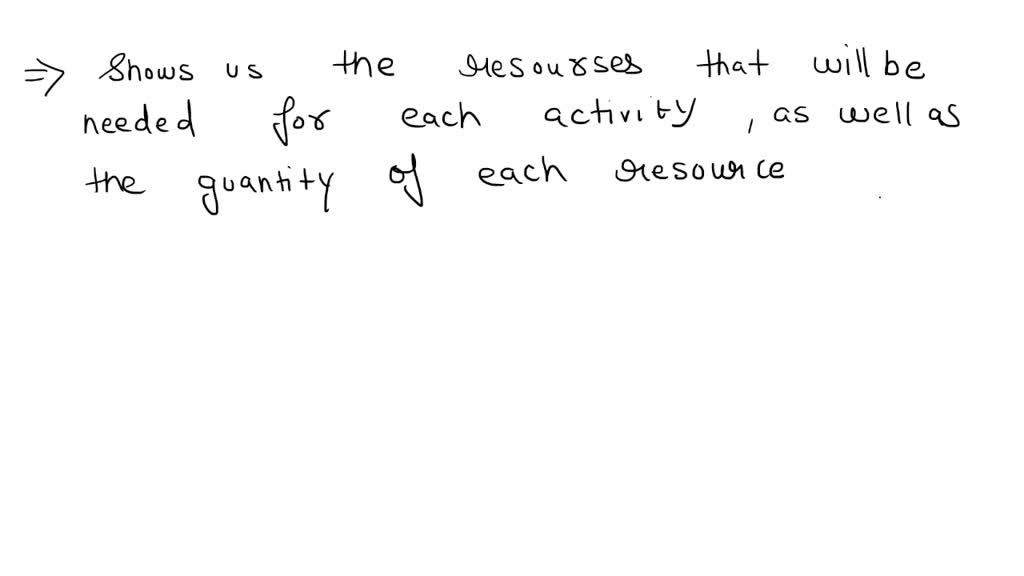 ⇒ Shows us the resourses that will be
needed for each activity, as well as
the quantity of each resource